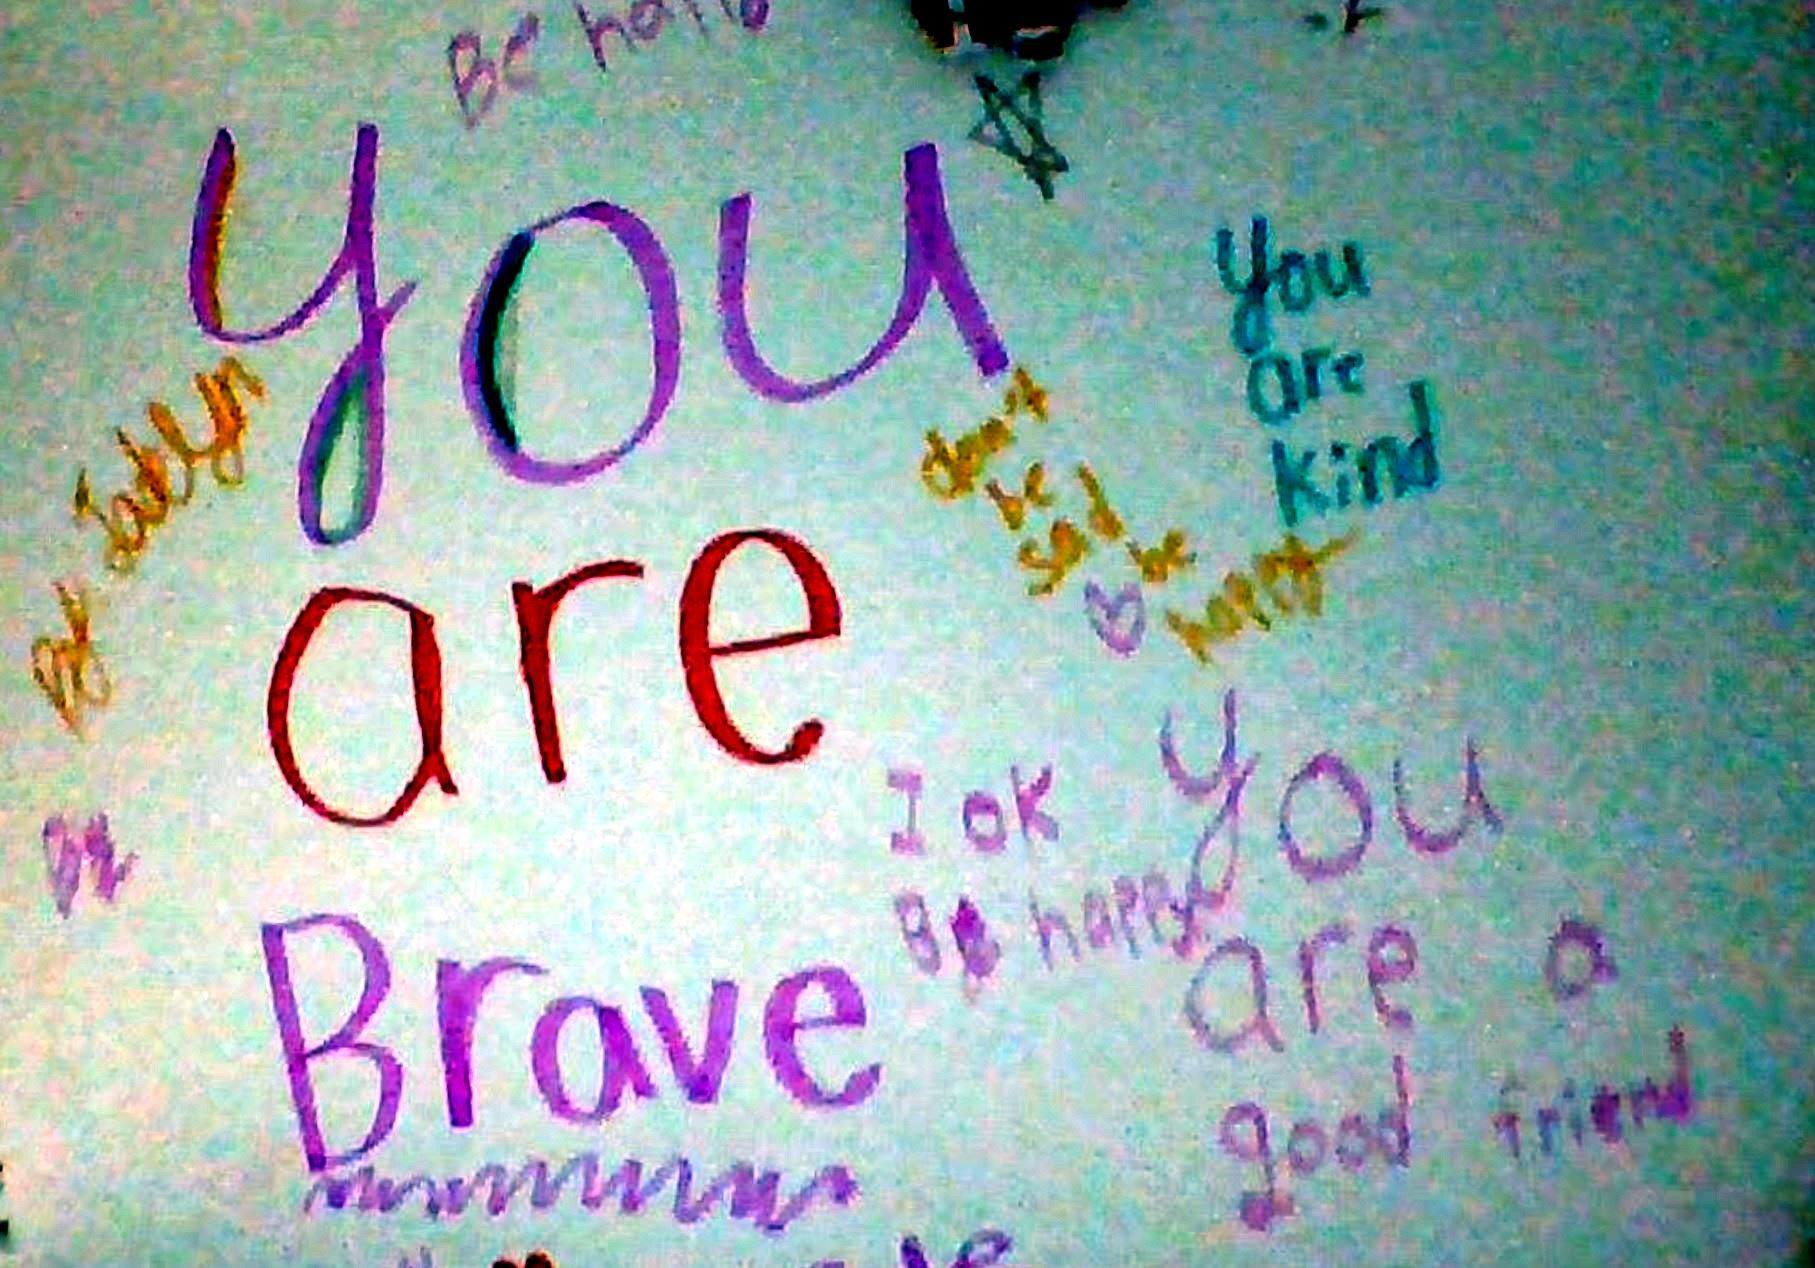 Be
You
You
are
kind
don't
be
sad
be
happy
By Jadyn
are
I ok
Be happy
You
are a
good friend
Brave